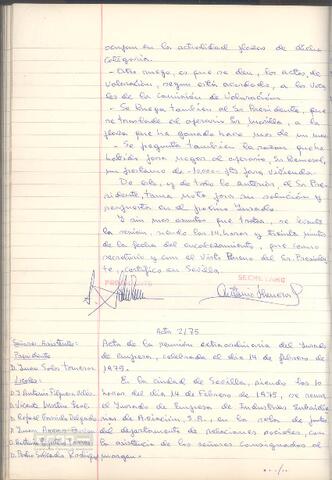 ocupan en la actualidad plazas de dicha
categoría.
- Otro ruego, es que se den, los actos, de
valoración, según está acordado, a los Voca
les de la Comisión de Valoración.
- Se ruega también al Sr. Presidente, que
se traslade al operario Sr. Morilla, a la
plaza que ha ganado hace mas de un mes
- Se pregunta también la razón que ha
habido para negar al operario, Sr.
un préstamo de ptas para vivienda.
De ello, y de todo lo anterior, el Sr. Pre-
sidente, toma nota para su solución y
respuesta en el próximo Jurado.
Y sin mas asuntos que tratar, se levanta
la sesión, siendo las 14 horas y treinta minutos
de la fecha del encabezamiento, que como
secretario y con el Visto Bueno del Sr. Presiden
te, certifico en Sevilla.
PRESIDENTE
SECRETARIO
Acta 2/75
Señores Asistentes:
Presidente
D. Juan Salas
Vocales:
D. Antonio Piguera
D. Vicente
D. Rafael Garrido Delgado
D. Juan
D. Antonio
D. Pedro Salcedo Rodríguez
Acta de la reunión extraordinaria del Jurado
de Empresa, celebrada el dia 14 de febrero de
1975.
En la ciudad de Sevilla, siendo las 10
horas del dia 14 de Febrero de 1975, se reune
el Jurado de Empresa de Industrias Subsidia
rias de Aviación, S.A., en la sala de juntas
del departamento de relaciones sociales, con
la asistencia de los señores consignados al
margen.